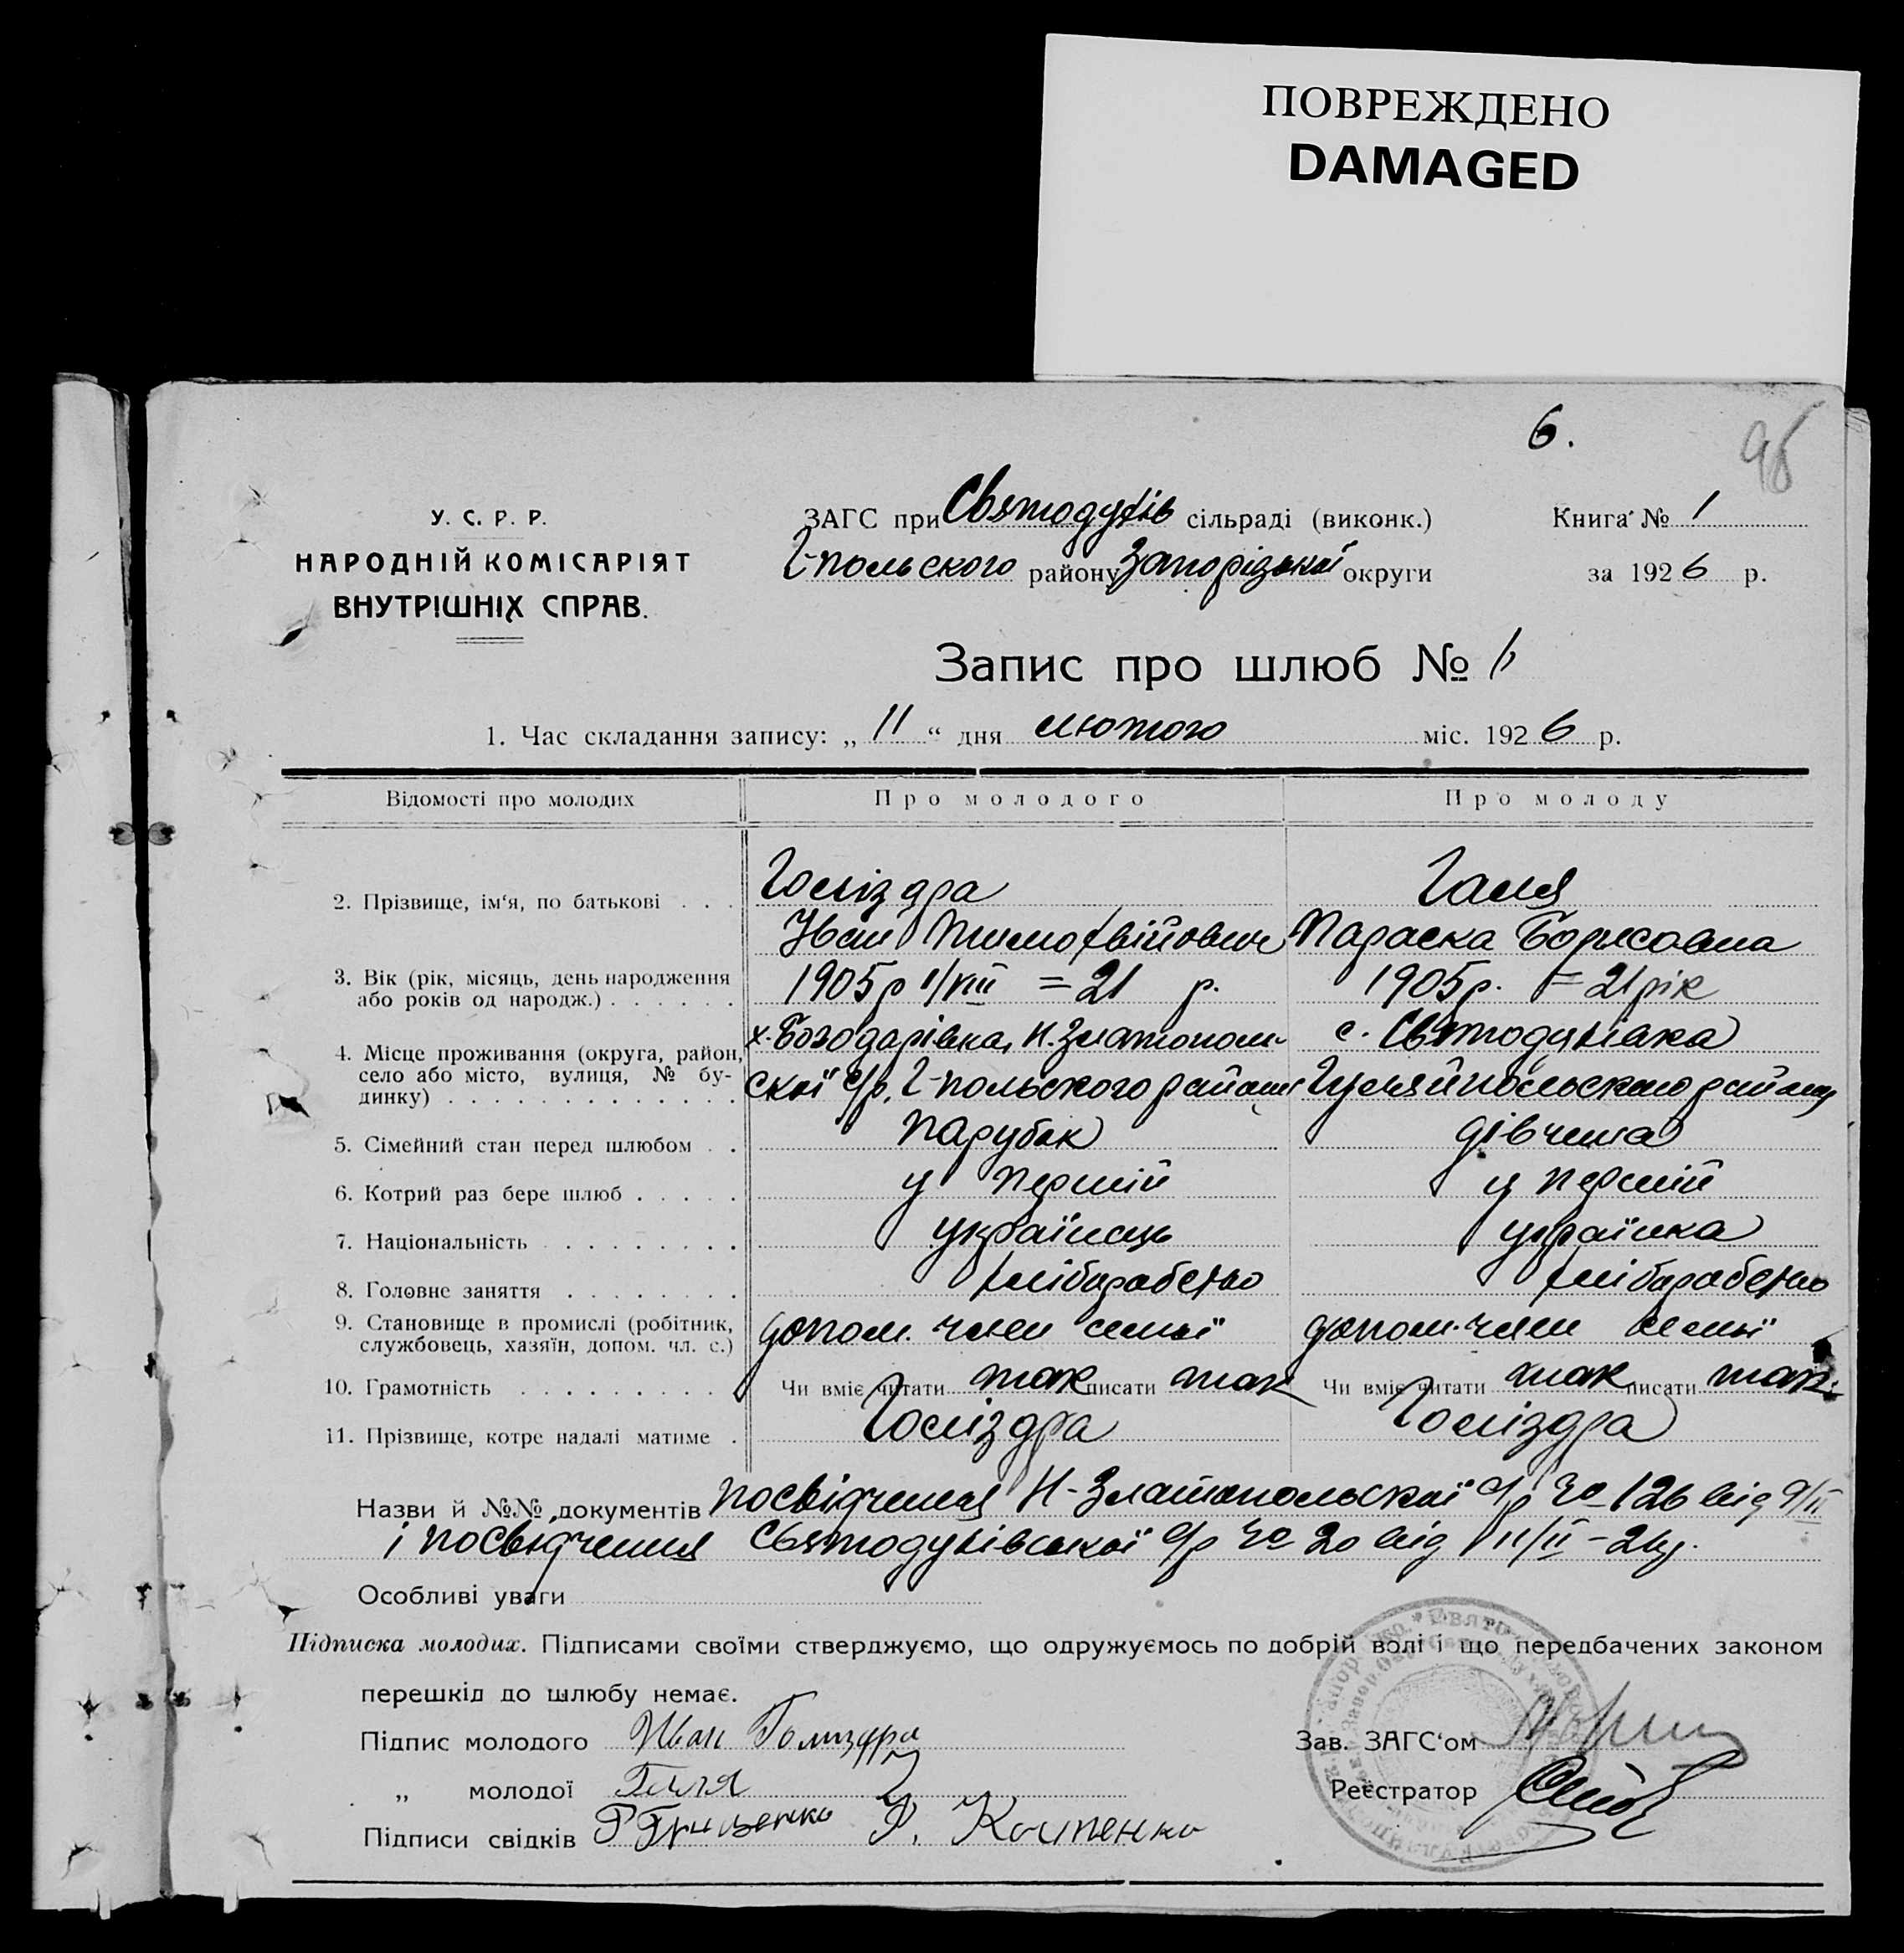 ПОВРЕЖДЕНО
DAMAGED
6.
У. С. Р. Р.
НАРОДНІЙ КОМІСАРІЯТ
ВНУТРІШНІХ СПРАВ.
ЗАГС при Святодухів сільраді (виконк.)
Г-польского району Запорізької округи
Книга № 1
за 1926 р.
Запис про шлюб №
1. Час складання запису: „ 11 “ дня лютого міс. 1926 р.
Відомості про молодих Про молодого Про молоду
2. Прізвище, ім‘я, по батькові . . . Голіздра Галя
Іван Тимофвійович Параска Борисовна
3. Вік (рік, місяць, день народження
або років од народж.) . . . . . . 1905 р 1/VIII = 21 р. 1905 р. = 21 рік
4. Місце проживання (округа, район, х. Богодарівка, Н. Златополь- с. Святодухівка
село або місто, вулиця, № бу-
динку) . . . . . . . . . . . . . ської с/р, Г-польского району Гуляйпольского району
5. Сімейний стан перед шлюбом . . парубок дівчина
6. Котрий раз бере шлюб . . . . . у перший у перший
7. Національність . . . . . . . . . українець українка
8. Головне заняття . . . . . . . . хліборобство хліборобство
9. Становище в промислі (робітник,
службовець, хазяїн, допом. чл. с.) допом. член семьї допом. член семьї
10. Грамотність . . . . . . . . . Чи вміє читати так писати так Чи вміє читати так писати так
11. Прізвище, котре надалі матиме . Голіздра Голіздра
Назви й №№ документів посвідчення Н-Златопольської с/р № 126 від 9/II
і посвідчення Святодухівської с/р № 20 від 11/II – 26 р.
Особливі уваги
Підписка молодих. Підписами своїми стверджуємо, що одружуємось по добрій волі і що передбачених законом
перешкід до шлюбу немає.
Підпис молодого Иван Голиздра
„ молодої Галя
Підписи свідків Р Гриценко
Зав. ЗАГС‘ом
Реєстратор